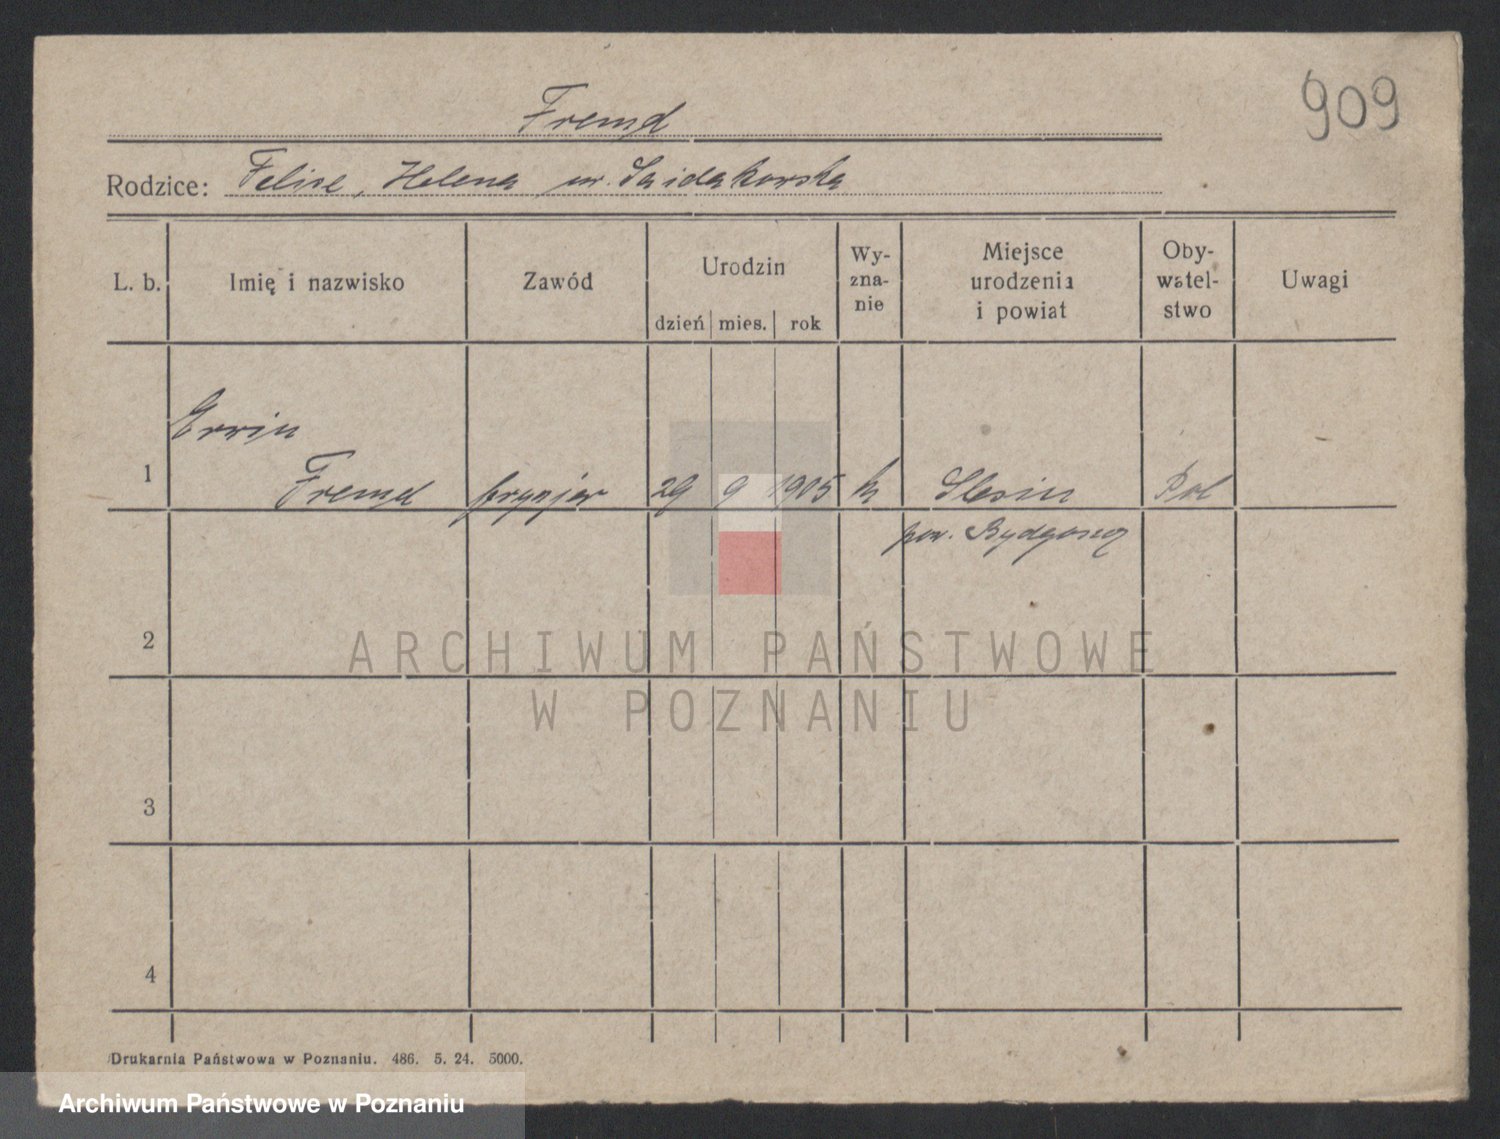 909
Fremd
Rodzice: Felix, Helena ur. Saidakowska
L. b. Imię i nazwisko Zawód Urodzin Wy-zna-nie Miejsce urodzenia i powiat Oby-watel-stwo Uwagi
dzień mies. rok
Erwin
1 Fremd fryzjer 29 9 1905 k Slesin Pol
pow. Bydgoszcz
2
ARCHIWUM PAŃSTWOWE
W POZNANIU
3
4
Drukarnia Państwowa w Poznaniu. 486. 5. 24. 5000.
Archiwum Państwowe w Poznaniu